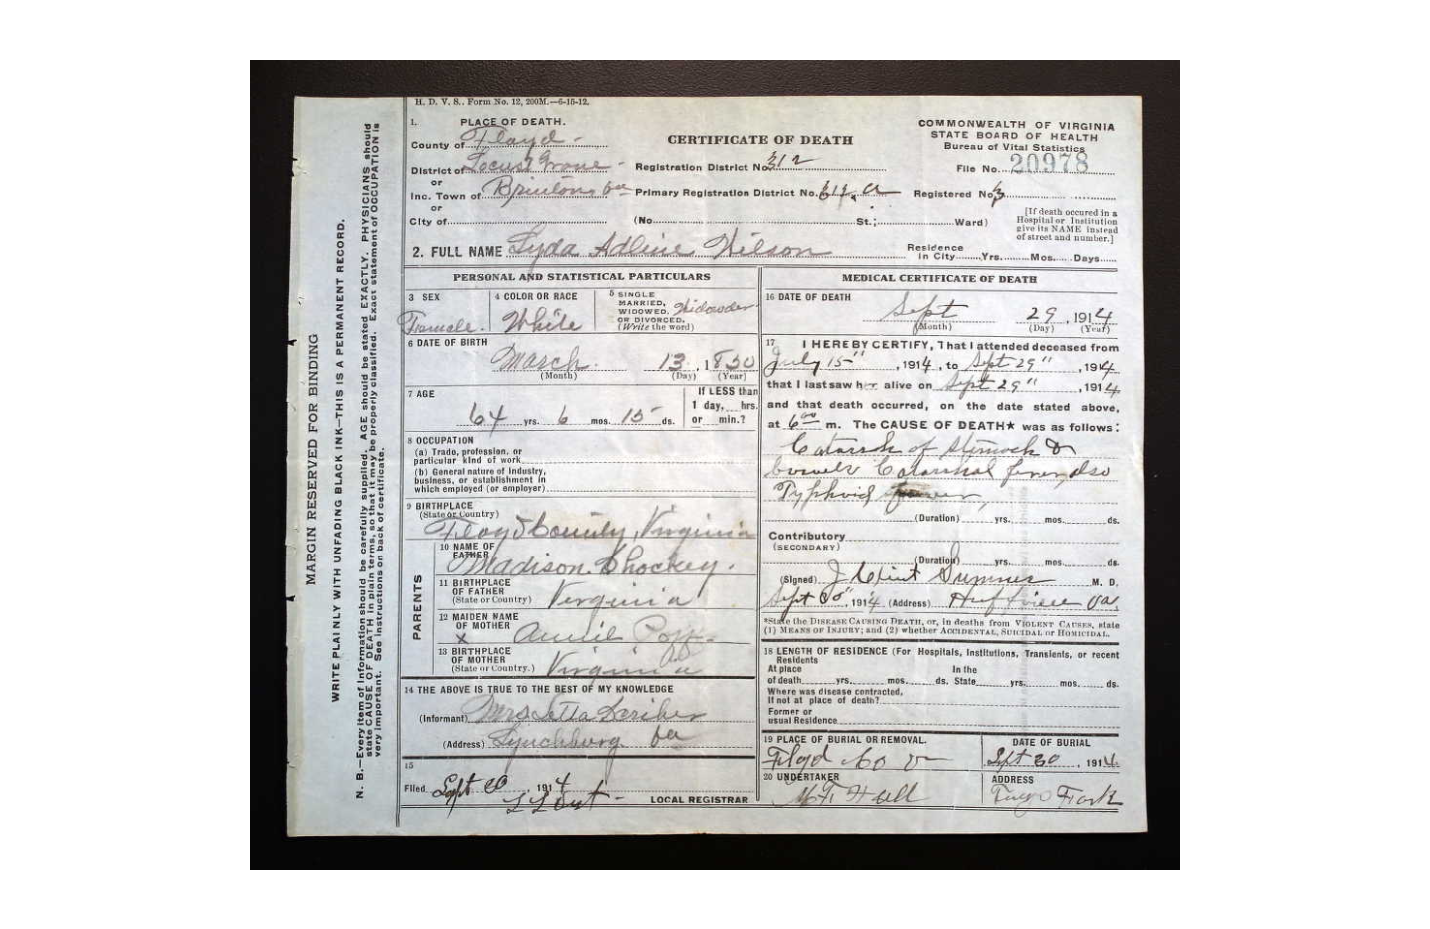 H. D. V. S., Form No. 12, 200M.—6-15-12.
1. PLACE OF DEATH.
County of Floyd
District of Locust Grove
or
Inc. Town of
or
City of
CERTIFICATE OF DEATH
Registration District No. 312
Primary Registration District No.
(No. St.; Ward)
COMMONWEALTH OF VIRGINIA
STATE BOARD OF HEALTH
Bureau of Vital Statistics
File No. 20978
Registered No. 3
[If death occured in a
Hospital or Institution
give its NAME instead
of street and number.]
2. FULL NAME Lyda Adline Wilson
Residence
in City Yrs. Mos. Days
PERSONAL AND STATISTICAL PARTICULARS
3 SEX
Female.
4 COLOR OR RACE
White
5 SINGLE
MARRIED,
WIDOWED,
OR DIVORCED.
(Write the word)
6 DATE OF BIRTH
March 13, 1850
(Month) (Day) (Year)
7 AGE
64 yrs. 6 mos. 15 ds.
If LESS than
1 day, hrs.
or min.?
8 OCCUPATION
(a) Trade, profession, or
particular kind of work
(b) General nature of industry,
business, or establishment in
which employed (or employer)
9 BIRTHPLACE
(State or Country)
Floyd County, Virginia
PARENTS
10 NAME OF
FATHER
Madison Shockey.
11 BIRTHPLACE
OF FATHER
(State or Country)
Virginia
12 MAIDEN NAME
OF MOTHER
x Annie Poff
13 BIRTHPLACE
OF MOTHER
(State or Country.)
Virginia
14 THE ABOVE IS TRUE TO THE BEST OF MY KNOWLEDGE
(Informant) Mrs
(Address) Lynchburg Va
15
Filed Sept 30, 1914
LOCAL REGISTRAR
MEDICAL CERTIFICATE OF DEATH
16 DATE OF DEATH
Sept 29, 1914
(Month) (Day) (Year)
17 I HEREBY CERTIFY, That I attended deceased from
July 15", 1914, to Sept 29", 1914
that I last saw her alive on Sept 29", 1914
and that death occurred, on the date stated above,
at 6 00 m. The CAUSE OF DEATH★ was as follows:
Catarrh of stomach &
bowels Catarrhal also
Typhoid
(Duration) yrs. mos. ds.
Contributory
(SECONDARY)
(Duration) yrs. mos. ds.
(Signed) J Clint Sumner M. D.
Sept 30", 1914 (Address) Huffville Va.
*State the DISEASE CAUSING DEATH, or, in deaths from VIOLENT CAUSES, state
(1) MEANS OF INJURY; and (2) whether ACCIDENTAL, SUICIDAL or HOMICIDAL.
18 LENGTH OF RESIDENCE (For Hospitals, Institutions, Transients, or recent
Residents
At place In the
of death yrs. mos. ds. State yrs. mos. ds.
Where was disease contracted,
if not at place of death?
Former or
usual Residence
19 PLACE OF BURIAL OR REMOVAL.
Floyd Co
DATE OF BURIAL
Sept 30, 1914
20 UNDERTAKER
Hall
ADDRESS
Fork
MARGIN RESERVED FOR BINDING
WRITE PLAINLY WITH UNFADING BLACK INK—THIS IS A PERMANENT RECORD.
N. B.—Every item of Information should be carefully supplied. AGE should be stated EXACTLY. PHYSICIANS should
state CAUSE OF DEATH in plain terms, so that it may be properly classified. Exact statement of OCCUPATION is
very important. See instructions on back of certificate.